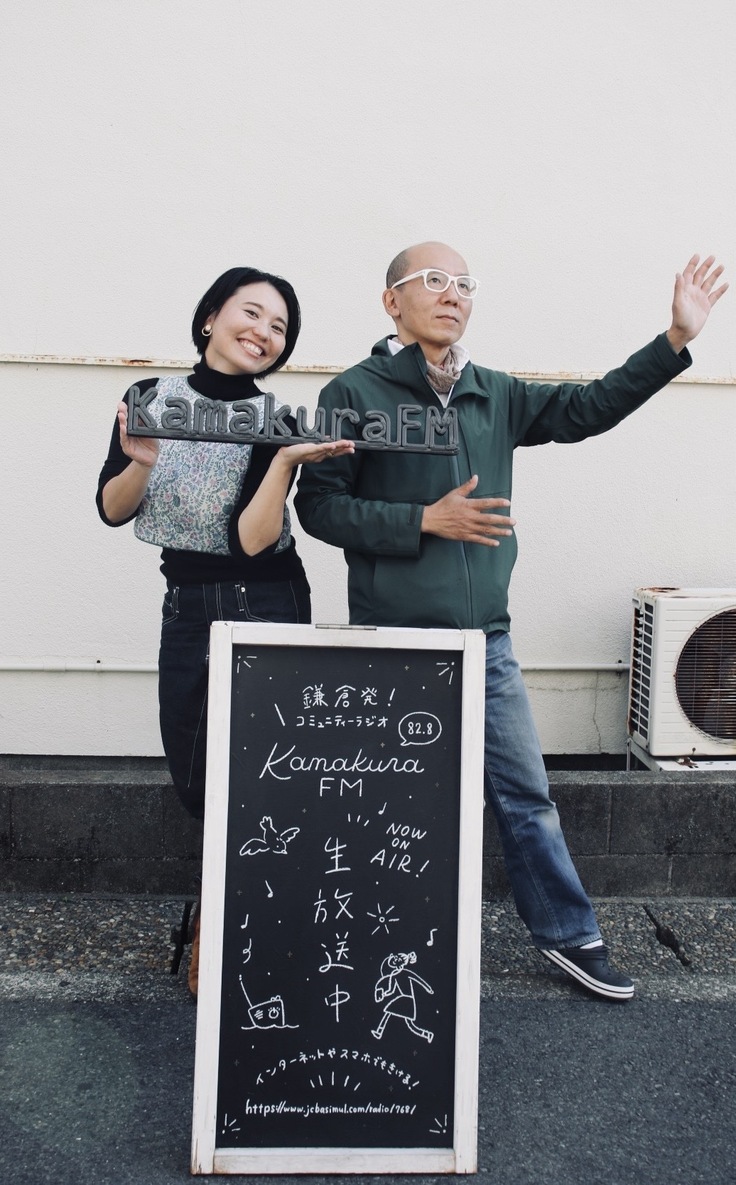 KamakuraFM
鎌倉発!
コミュニティーラジオ
82.8
Kamakura
FM
NOW
ON
AIR!
生放送中
インターネットやスマホでもきける!
https://www.jcbasimul.com/radio/768/